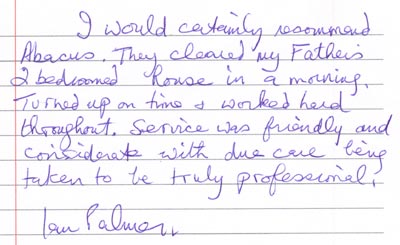 I would certainly recommend
Abacus. They cleared my Father's
2 bedroomed house in a morning.
Turned up on time & worked hard
throughout. Service was friendly and
considerate with due care being
taken to be truly professional.
Ian Palmer.